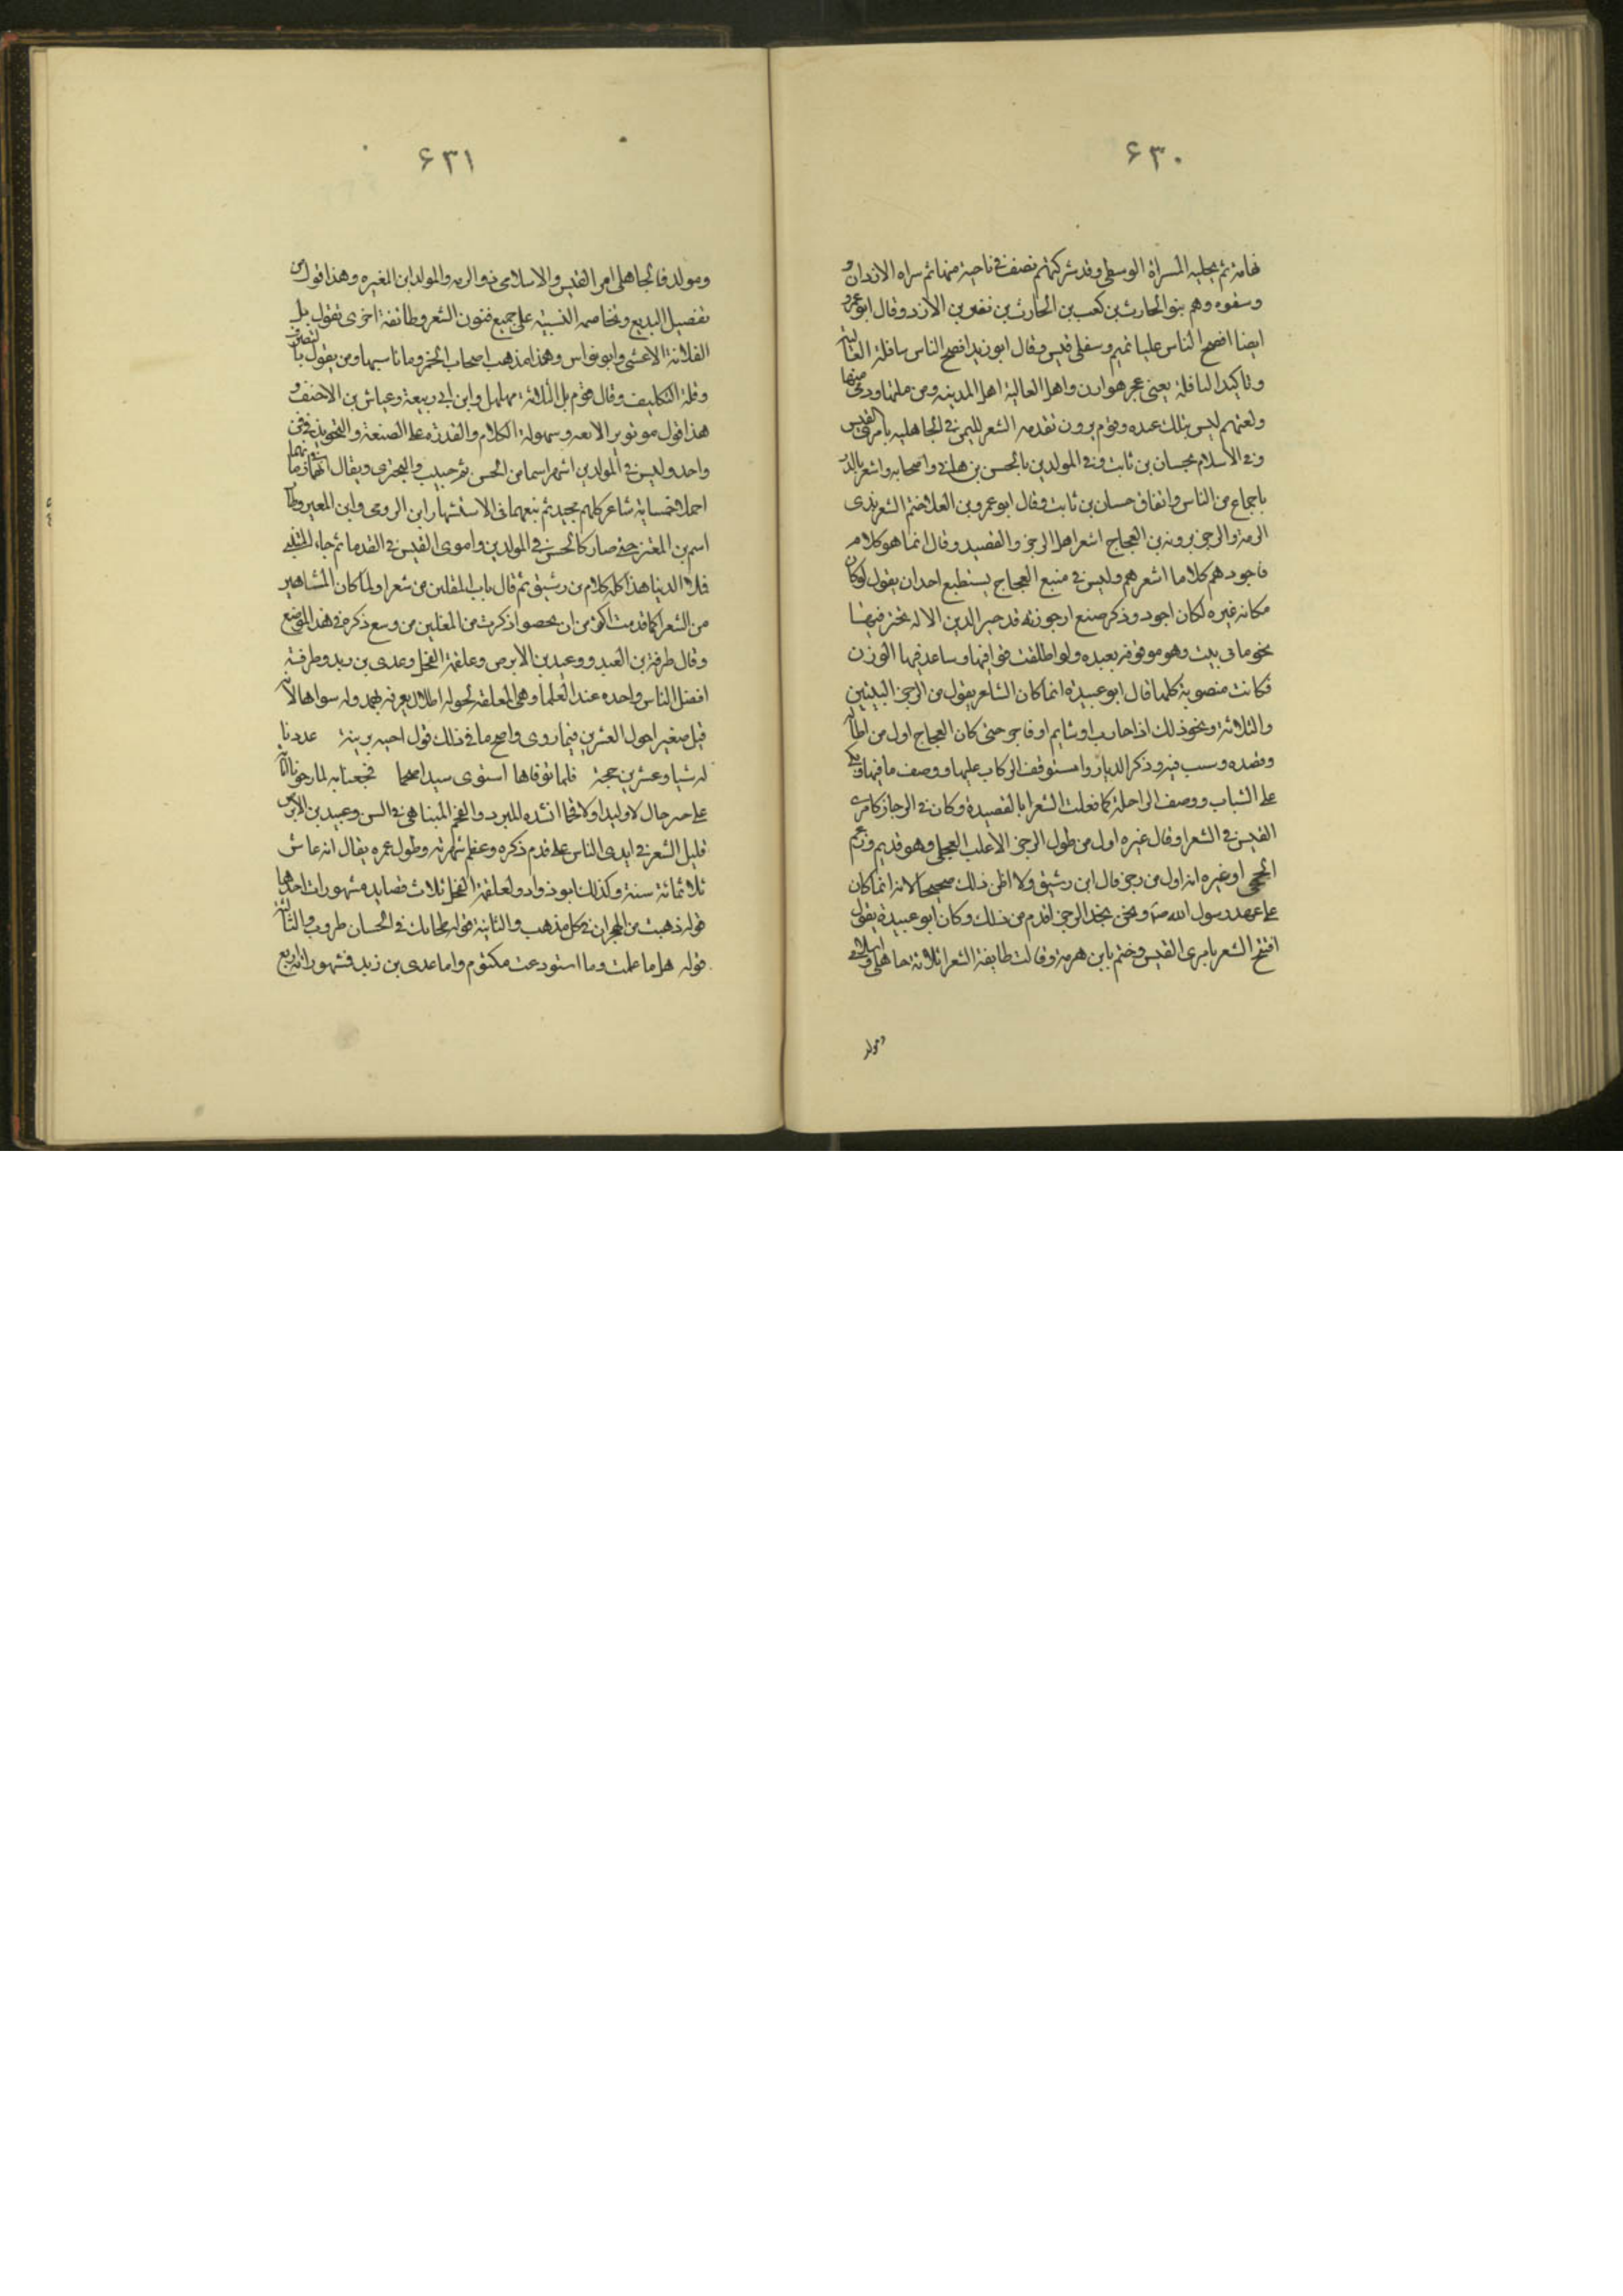 ۶۳۰
تهامة ثم بجلية السراة الوسطى وقد شركتهم نصف في ناحية منها ثم سراه الازد ان و
وسفوه وهم بنو الحارث بن كعب بن الحارث بن نضر بن الازد وقال ابو عمرو
ايضا افصح الناس عليا تميم وسفلى قيس وقال ابو زيد افصح الناس سافلة العالية
وتاكيد السافلة يعنى عجز هوازن واهل العالية اهل المدينه ومن حلها ودنى منها
ولغتهم ليس بتلك عنده وقوم يرون تقدمه الشعر لليمن في الجاهليه بامرئ القيس
وفي الاسلام بحسان بن ثابت وفي المولدين بالحسن بن هانئ واصحابه واشعر
باجماع من الناس واتفاق حسان بن ثابت وقال ابو عمرو بن العلا ختم الشعر بذى
الرمة والرجز برونه بن العجاج اشعر اهل الرجز والقصيد وقال انما هو كلام
فاجودهم كلاما اشعرهم وليس في منبع العجاج يستطيع احد ان يقول لو كان
مكانه غيره لكان اجود وذكر صنع ارجوزته قد جبر الدين الاله فجبر فيها
نحو ماتى بيت وهو موقوفر بعيده ولو اطلقت قوافيها وساعد فيها الوزن
فكانت منصوبة كلها قال ابو عبيدة انما كان الشاعر يقول من الرجز البيتين
والثلاثة ونحو ذلك اذا حارب او شايم او فاجر حتى كان العجاج اول من اطاله
وقصده وسب فيه وذكر الديار واستوقف الركاب عليها ووصف ما فيها وبكى
على الشباب ووصف الراحلة كما فعلت الشعرا بالقصيدة وكان في الرجاز كامرى
القيس في الشعرا وقال غيره اول من طول الرجز الاغلب العجلى وهو قديم وزعم
الجمحى او غيره انه اول من رجز قال ابن رشيق ولا اظن ذلك صحيحا لانه انما كان
على عهد رسول الله ص ونحن نجد الرجز اقدم من ذلك وكان ابو عبيدة يقول
افتتح الشعر بامرى القيس وختم بابن هرمة وقالت طايفة الشعرا ثلاثة جاهلى واسلامى
ومولد
۶۳۱
ومولد فالجاهلى امرا القيس والاسلامى ذو الرمه والمولد ابن المغيره وهذا قول من
تفضيل البديع وبخاصه التشبيه على جميع فنون الشعر وطائفة اخرى تقول بل
الثلاثة الاعشى وابو نواس وهذا مذهب اصحاب الخمر وما ناسبها ومن يقول بالتصرف
وقلة التكليف وقال قوم بل الثلاثة مهلهل وابن ابى ربيعة وعباس بن الاحنف و
هذا قول من يوثر الانعه وسهولة الكلام والقدرة على الصنعة والتجويد في فن
واحد وليس في المولدين اشهر اسما من الحسن ثم حبيب والبحترى ويقال انهما
اخملا خمسماية شاعر كلهم مجيد ثم تبعهما في الاشتهار ابن الرومى وابن المعتز وطار
اسم بن المعتز حتى صار كالحسن في المولدين وامرى القيس في القدما ثم جاء المتنبى
فملا الدنيا هذا كله كلام بن رشيق ثم قال باب المقلين من شعرا ولما كان المشاهير
من الشعرا كما قدمت اكثر من ان يحصوا ذكرت من المقلين من وسع ذكره في هذا الموضع
وقال طرفة بن العبد وعبيد بن الابرص وعلقمة الفحل وعدى بن زيد وطرفة
افضل الناس واحده عند العلما وهى المعلقة لخوله اطلال ببرقه ثهمد وله سواها لانه
قتل صغيرا حول العشرين فيما روى واصح ما في ذلك قول اخيه يرثيه عددنا
له ستا وعشرين حجة فلما توفاها استوى سيدا ضخما فجعنا به لما رجونا ايابه
على خير حال لا وليدا ولا قحما انشده المبرد والقحم المتناهى في السن وعبيد بن الابرص
قليل الشعر في ايدى الناس على قدم ذكره وعظم شهرته وطول عمره يقال انه عاش
ثلاثمائة سنة وكذلك ابو ذواد ولعلقمة الفحل ثلاث قصايد مشهورات احداها
قوله ذهبت من الهجران في كل مذهب والثانية قوله طحا بك في الحسان طروب والثالثة
قوله هل ما علمت وما استودعت مكتوم واما عدى بن زيد فشهوراته اربع